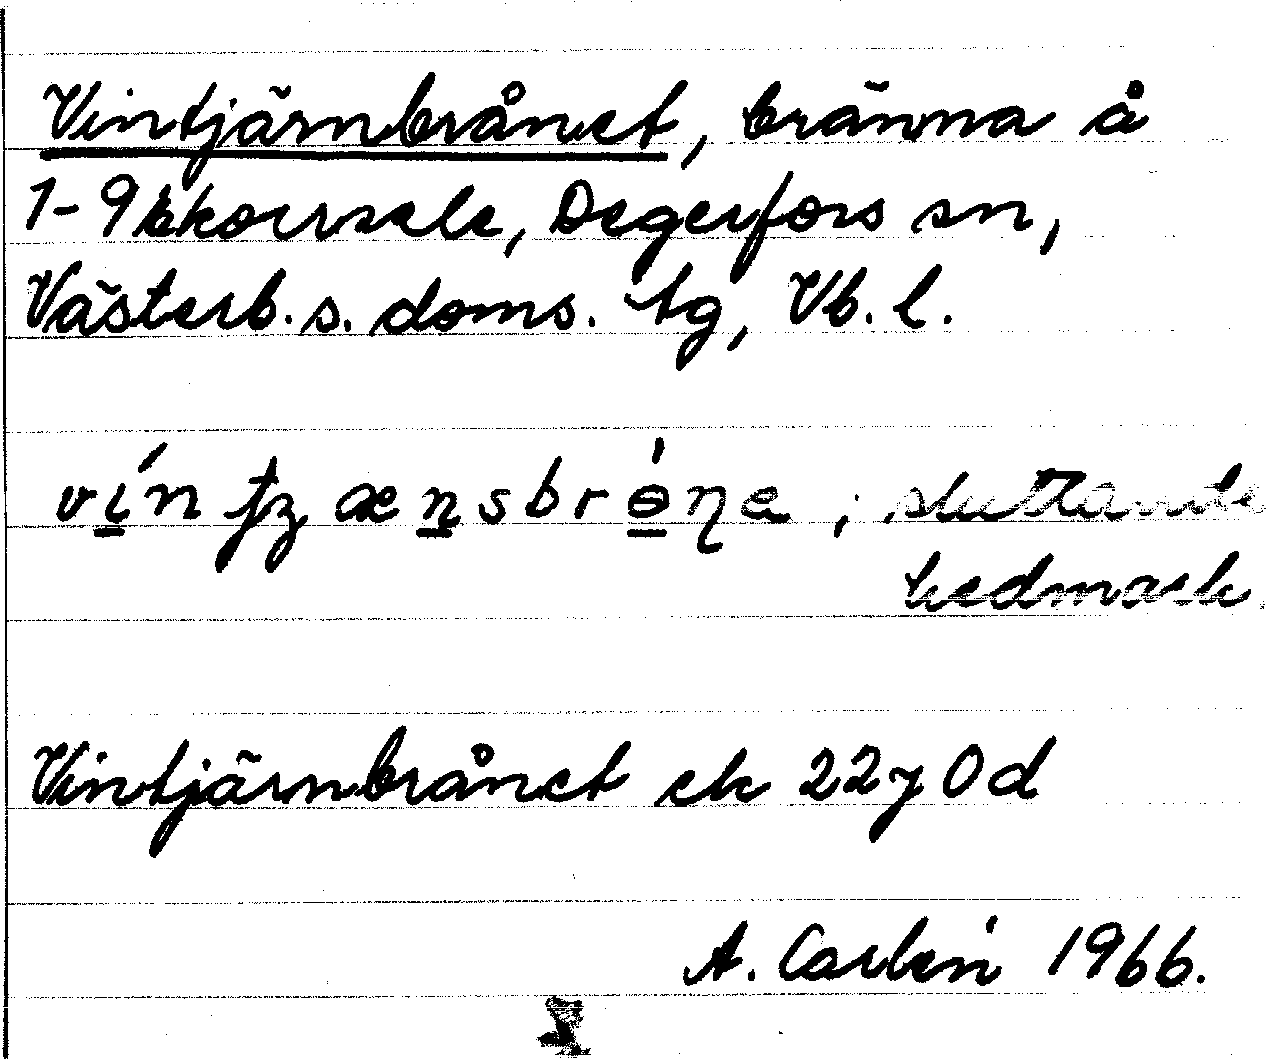 Vintjärnbrånet, bränna å
1-9 Ekorrsele, Degerfors sn,
Västerb. s. doms. tg, Vb. l.
; sluttande
hedmark.
Vintjärnbrånet ek 22y 0d
A. Carlén 1966.